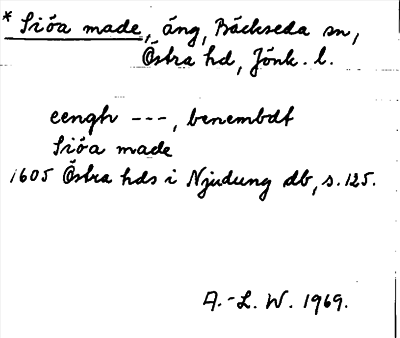 * Siöa made, äng, Bäckseda sn,
Östra hd, Jönk. l.
eengh ---, benembdt
Siöa made
1605 Östra hds i Njudung db, s. 125.
A.-L. W. 1969.